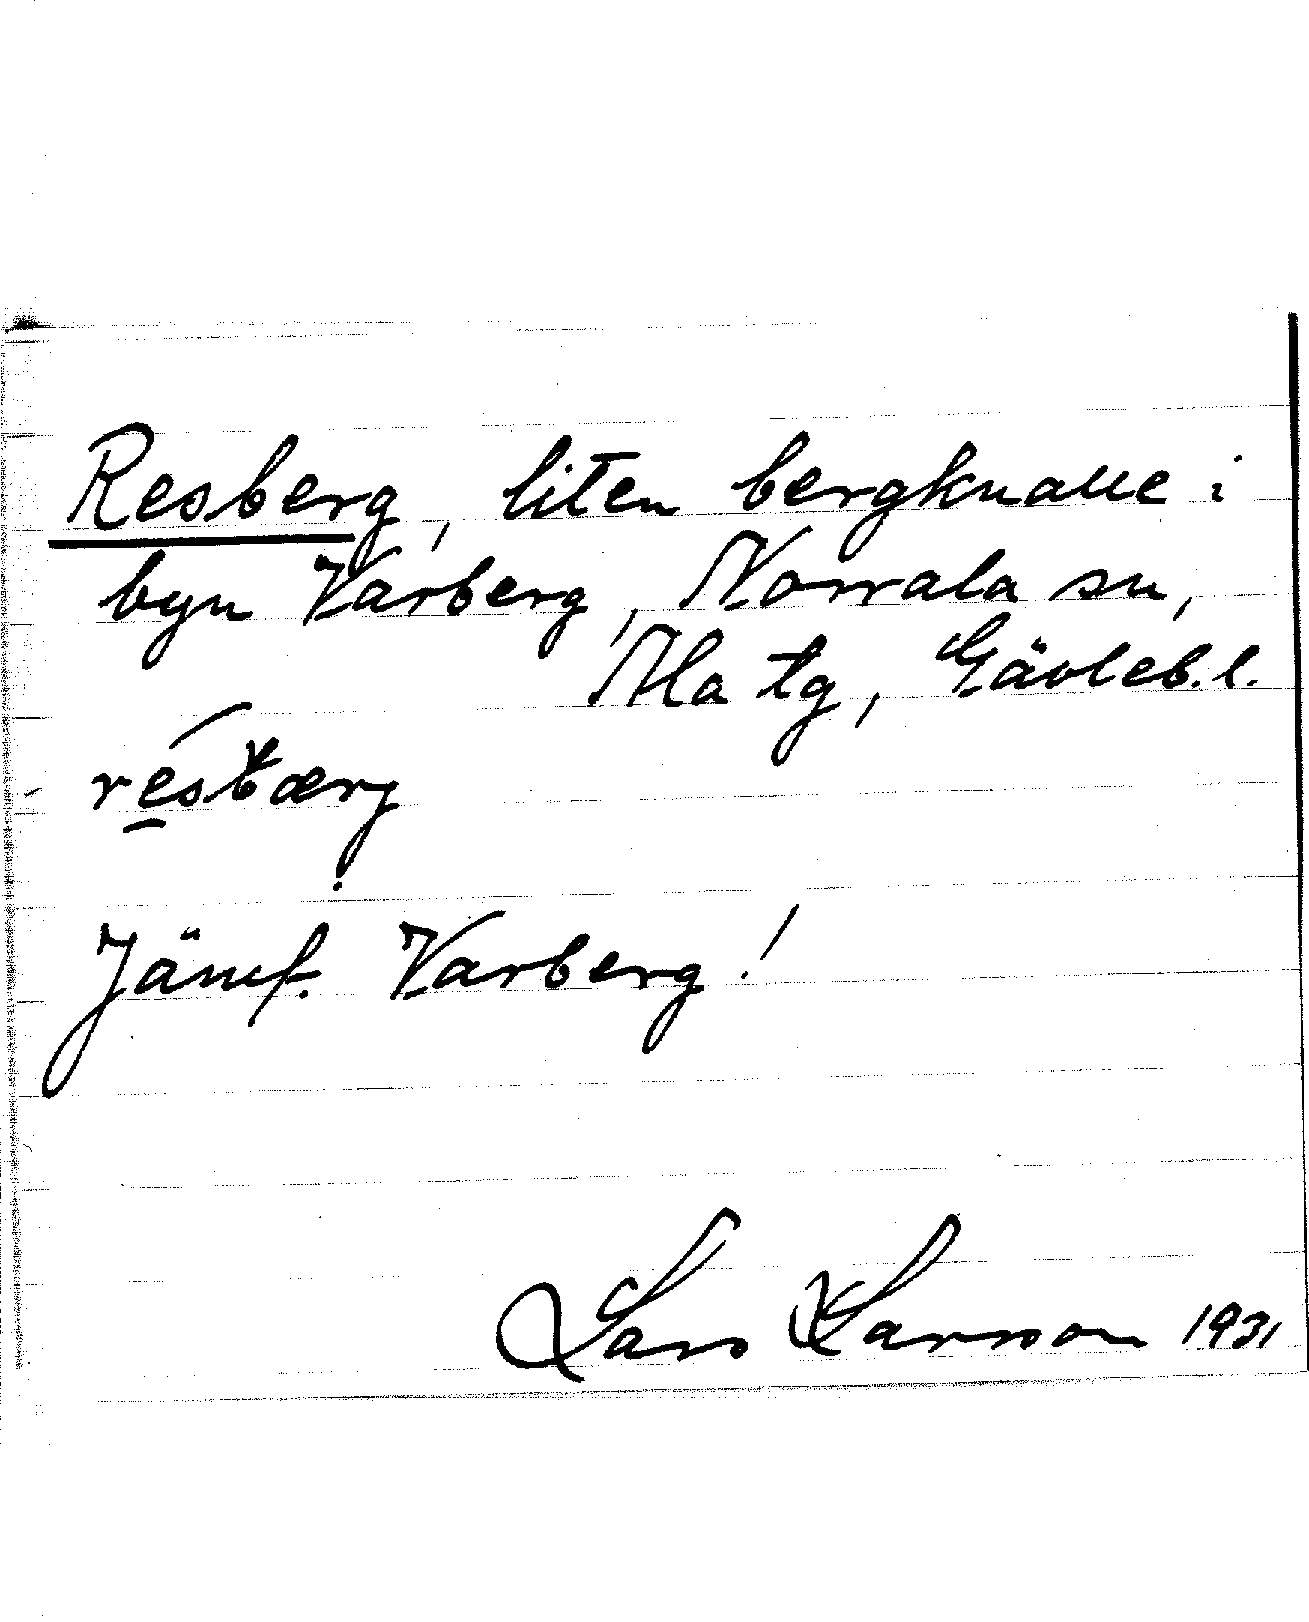 Resberg, liten bergknalle i
byn Varberg, Norrala sn,
Ala tg, Gävleb.l.
résbærj
Jämf. Varberg!
Lars Larsson 1931